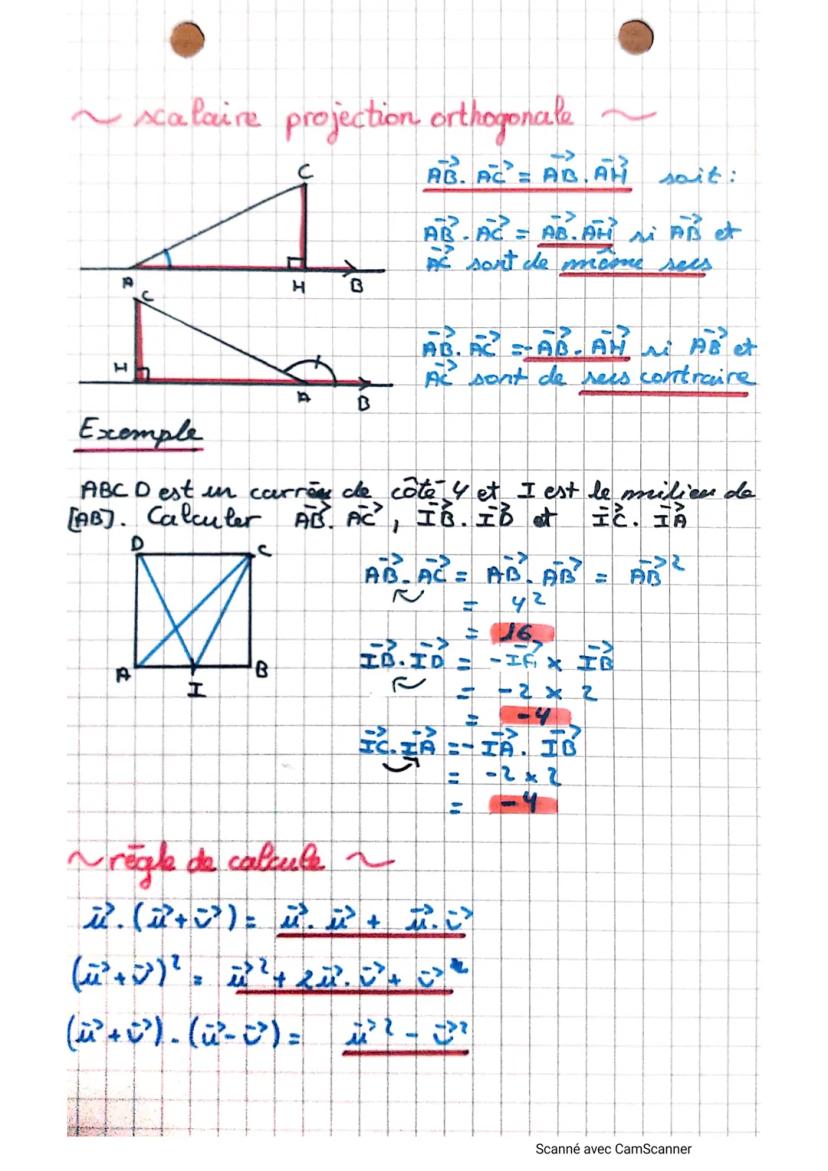 ~ scalaire projection orthogonale ~
C
A
H
B
AB⃗. AC⃗ = AB⃗. AH⃗ soit :
AB⃗. AC⃗ = AB⃗. AH⃗ si AB⃗ et
AC⃗ sont de même sens
C
H
A
B
AB⃗. AC⃗ = -AB⃗. AH⃗ si AB⃗ et
AC⃗ sont de sens contraire
Exemple
ABCD est un carrée de côté 4 et I est le milieu de
[AB]. Calculer AB⃗. AC⃗, IB⃗. ID⃗ et IC⃗. IA⃗
D
C
A
I
B
AB⃗. AC⃗ = AB⃗. AB⃗ = AB⃗²
= 4²
= 16
IB⃗. ID⃗ = -IA⃗ × IB⃗
= -2 × 2
= -4
IC⃗. IA⃗ = - IA⃗. IB⃗
= -2 × 2
= -4
~ règle de calcule ~
u⃗. (u⃗ + v⃗) = u⃗. u⃗ + u⃗. v⃗
(u⃗ + v⃗)² = u⃗² + 2u⃗. v⃗ + v⃗²
(u⃗ + v⃗). (u⃗ - v⃗) = u⃗² - v⃗²
Scanné avec CamScanner